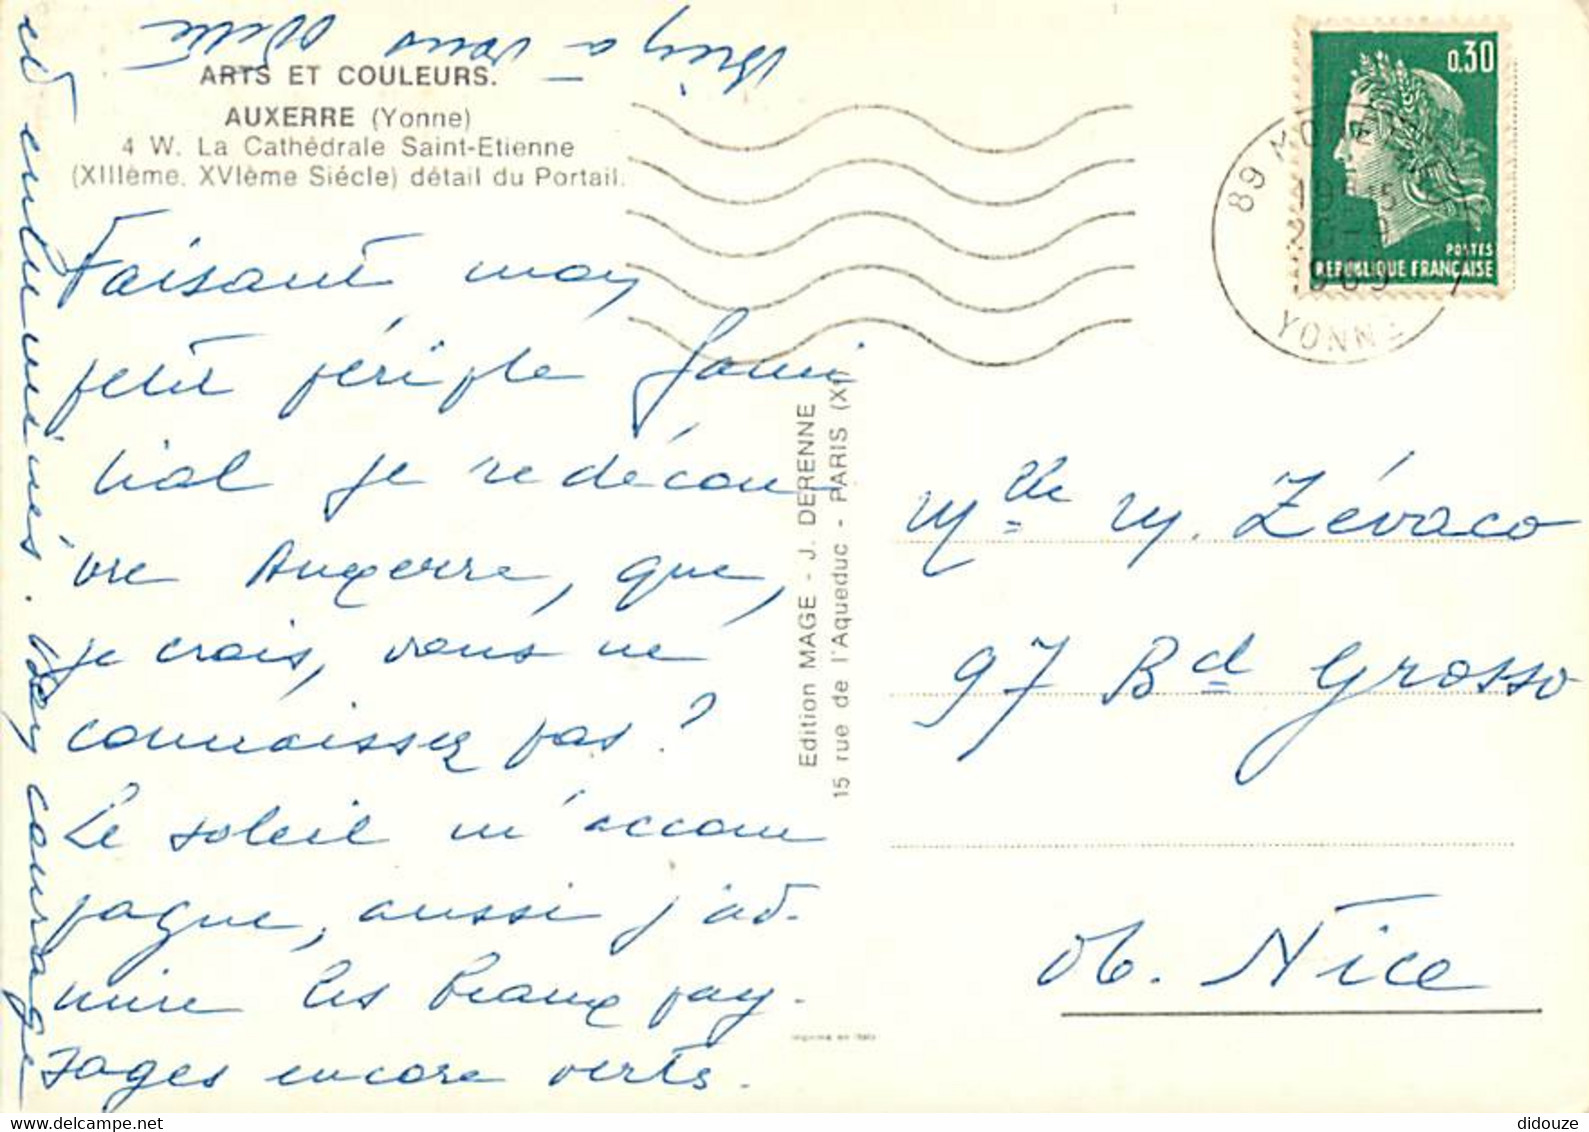 ARTS ET COULEURS.
AUXERRE (Yonne)
4 W. La Cathédrale Saint-Etienne
(XIIIème. XVIème Siécle) détail du Portail.
Faisant mon
petit périple fami
lial je redécou
vre Auxerre, que,
je crois, vous ne
connaissez pas?
Le soleil m'accom
pagne, aussi j'ad-
mire les beaux pay-
sages encore verts.
et enluminés. Bon courage
Bien à vous
Edition MAGE - J. DERENNE
15 rue de l'Aqueduc - PARIS (X)
0,30
POSTES
REPUBLIQUE FRANÇAISE
89
1969
YONNE
Mlle M. Zévaco
97 Bd Grosso
06. Nice
Imprimé en Italie
didouze